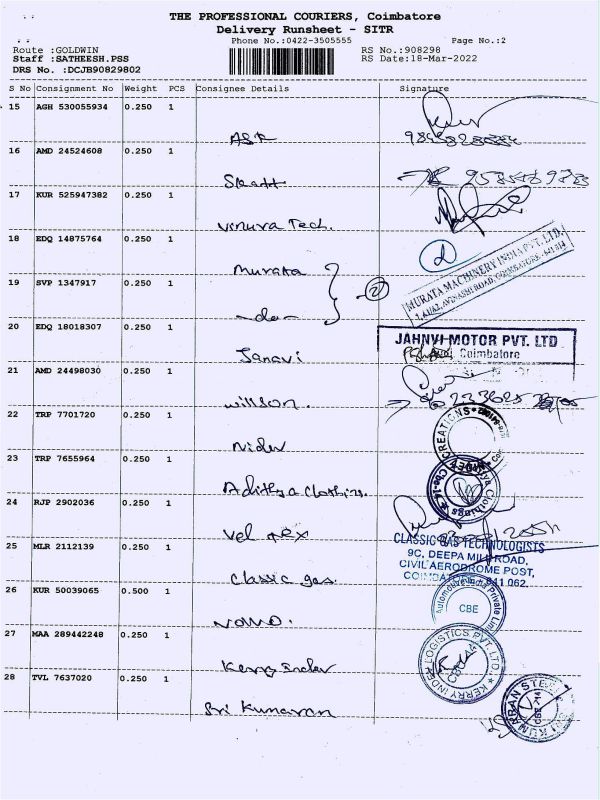 THE PROFESSIONAL COURIERS, Coimbatore
Delivery Runsheet - SITR
Phone No.:0422-3505555 Page No.:2
Route :GOLDWIN RS No.:908298
Staff :SATHEESH.PSS RS Date:18-Mar-2022
DRS No. :DCJB90829802
S No Consignment No Weight PCS Consignee Details Signature
15 AGH 530055934 0.250 1
ASR
16 AMD 24524608 0.250 1
17 KUR 525947382 0.250 1
Vinura Tech.
18 EDQ 14875764 0.250 1
Murata
MURATA MACHINERY INDIA PVT. LTD.
AVINASHI ROAD, COIMBATORE - 641 014
19 SVP 1347917 0.250 1
-do- 2
20 EDQ 18018307 0.250 1
JAHNVI MOTOR PVT. LTD
Coimbatore
Janavi
21 AMD 24498030 0.250 1
Willson.
22 TRP 7701720 0.250 1
CREATIONS
Nidev
23 TRP 7655964 0.250 1
Adithya Clothing.
24 RJP 2902036 1
Vel Tex
25 MLR 2112139 0.250 1
CLASSIC GAS TECHNOLOGISTS
9C, DEEPA MILL ROAD,
CIVIL AERODROME POST,
COIMBATORE - 641 062.
Classic gas.
26 KUR 50039065 0.500 1
Automotive India Private Limi
CBE
27 MAA 289442248 0.250 1
KERRY INDEV LOGISTICS PVT. LTD.
Kerry Indev
28 TVL 7637020 0.250 1
Sri Kumaran